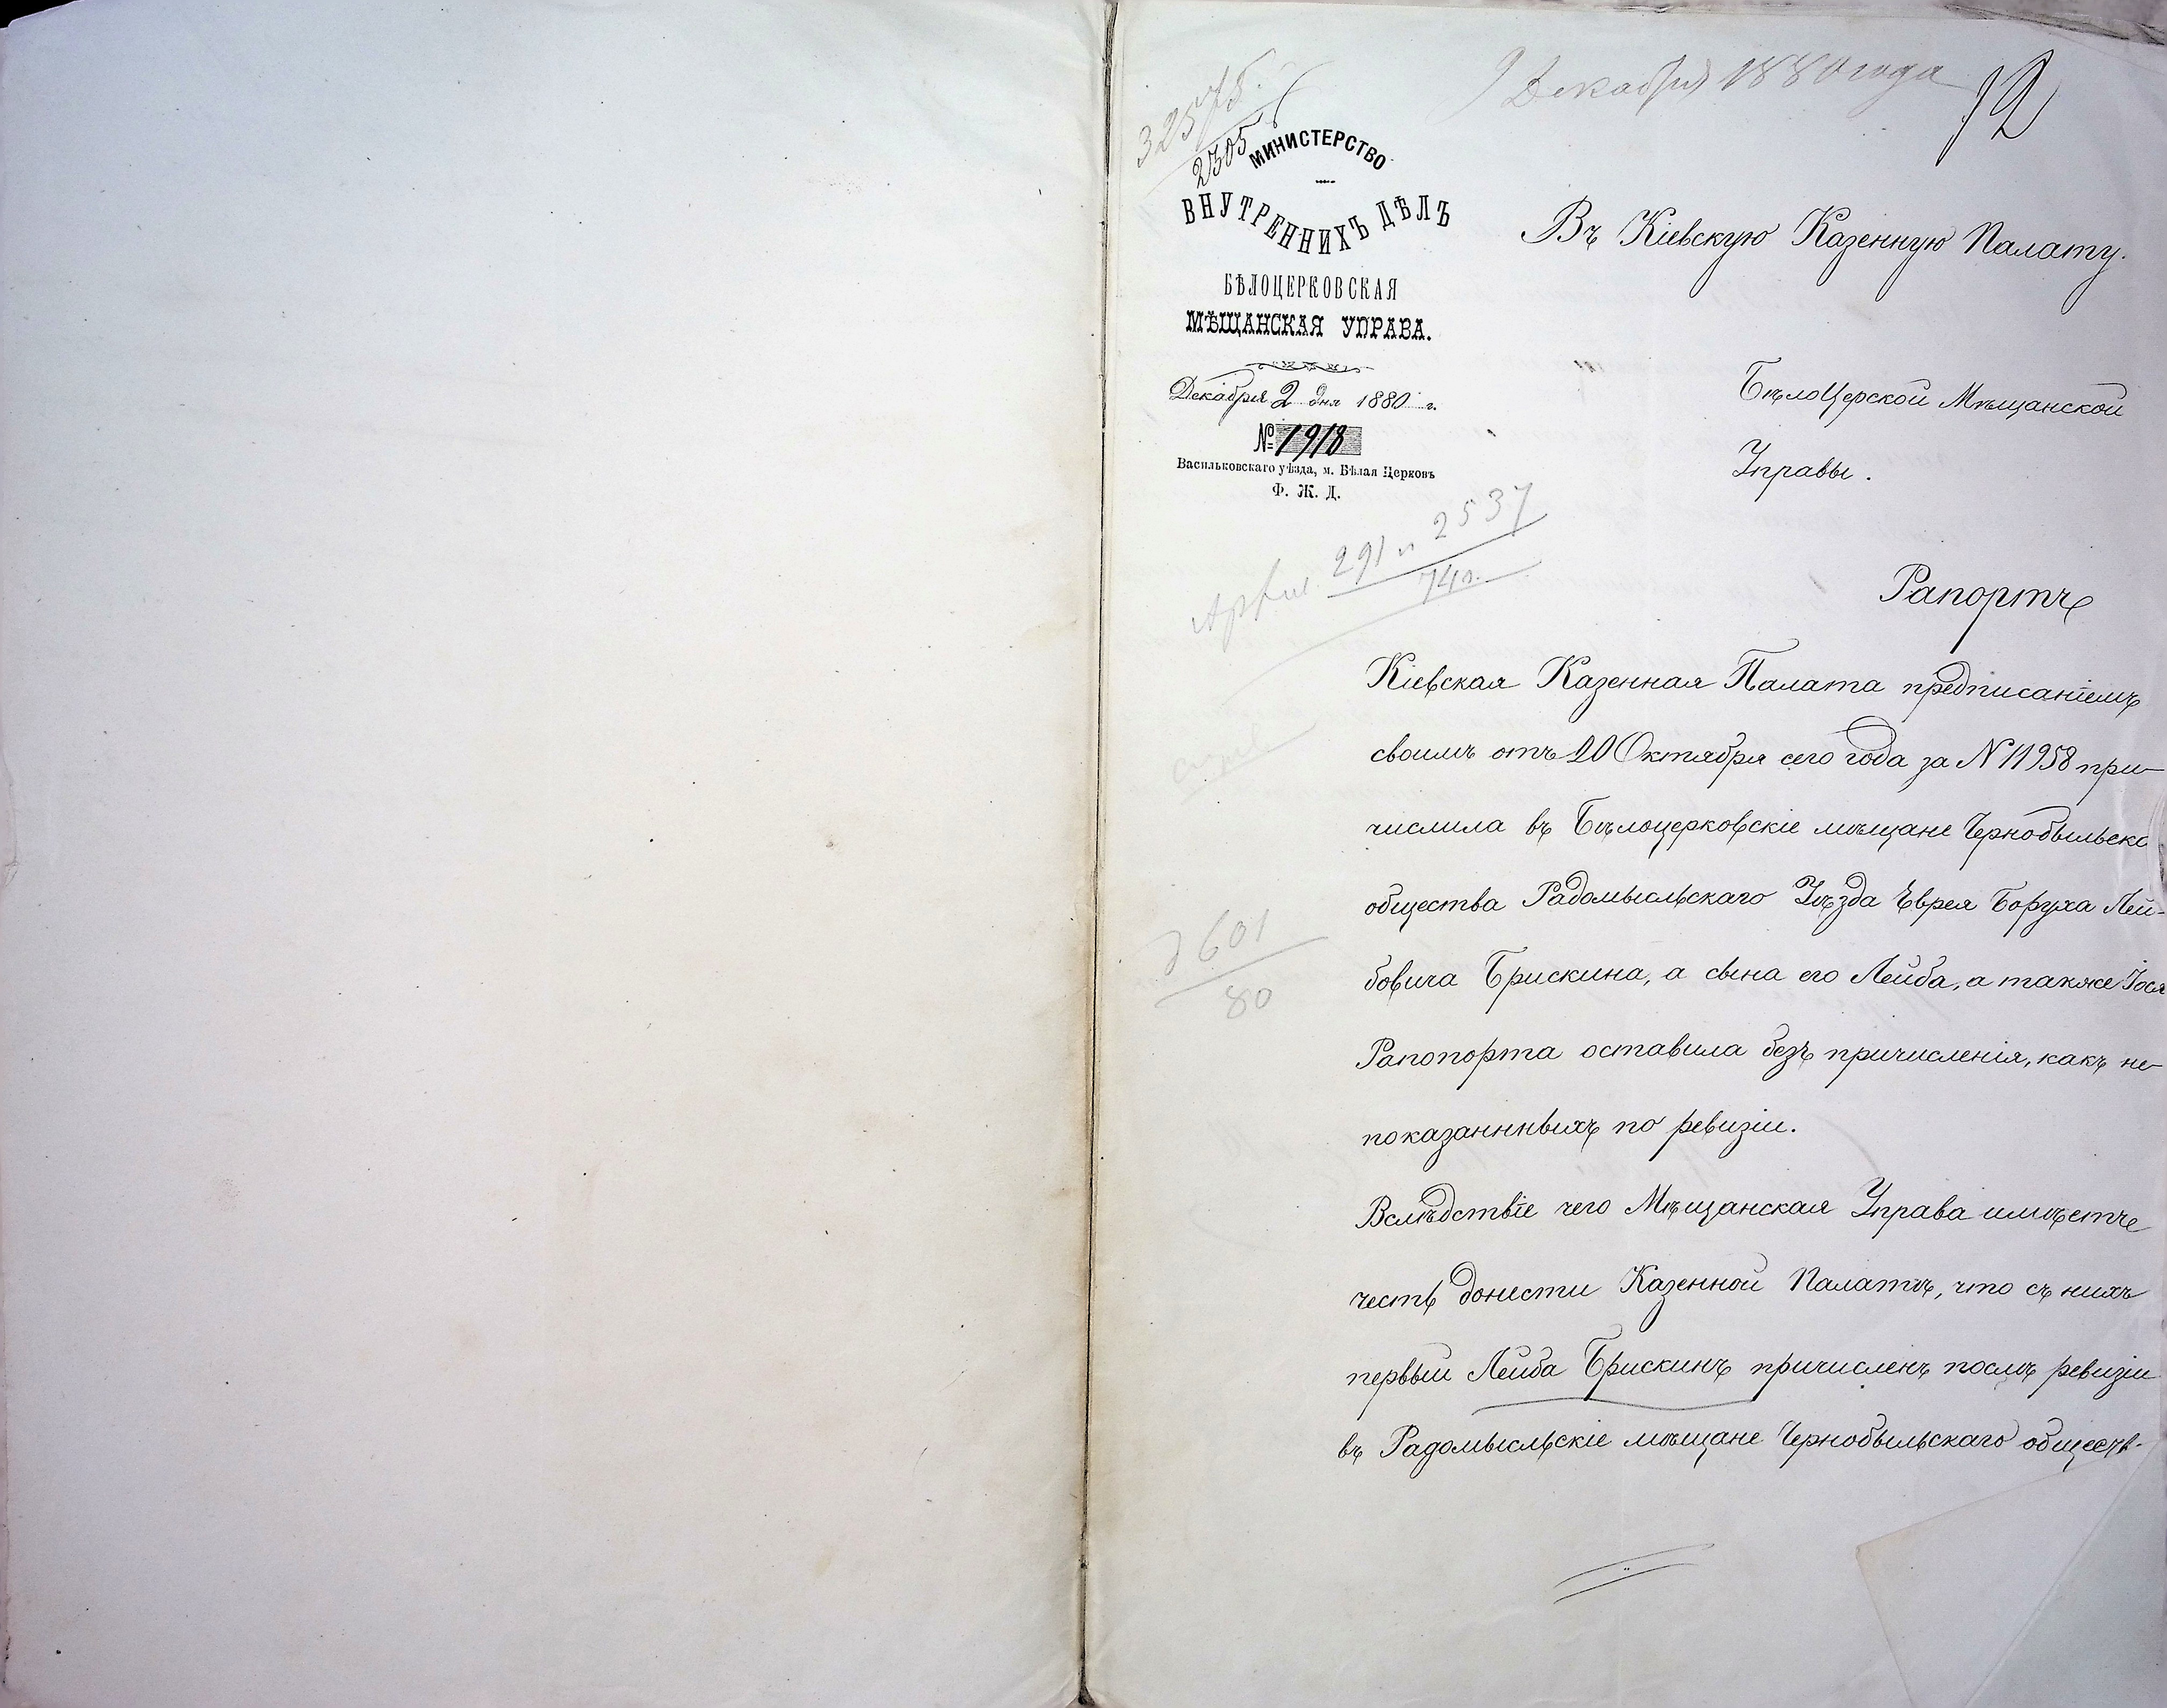 9 Декабря 1880 года
12
32575
2305
МИНИСТЕРСТВО
ВНУТРЕННИХЪ ДѢЛЪ
БѢЛОЦЕРКОВСКАЯ
МѢЩАНСКАЯ УПРАВА.
Декабря 2 дня 1880 г.
№ 1918
Васильковскаго уѣзда, м. Бѣлая Церковъ
Ф. Ж. Д.
Въ Кіевскую Казенную Палату.
БѣлоЦерской Мѣщанской
Управы.
291 и 2537
74 г.
Рапортъ
Кіевская Казенная Палата предписаніемъ
своимъ отъ 20 Октября сего года за N 11958 при-
числила въ Бѣлоцерковскіе мѣщане Чернобыльска
общества Радомысльскаго Уѣзда Еврея Боруха Лей-
бовича Брискина, а сына его Лейба, а также Іося
Рапопорта оставила безъ причисленія, какъ не-
показаннныхъ по ревизіи.
Вслѣдствіе чего Мѣщанская Управа имѣетъ
честь донести Казенной Палатѣ, что съ нихъ
первый Лейба Брискинъ причисленъ послѣ ревизіи
въ Радомысльскіе мѣщане Чернобыльскаго обществ-
601
80